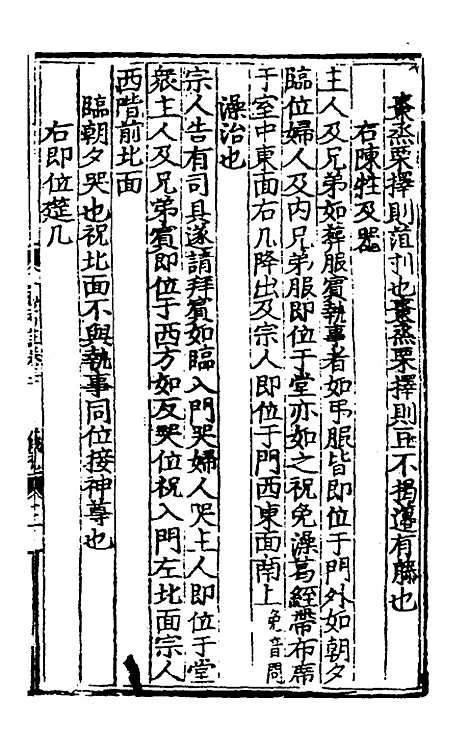 棗烝栗擇則菹刌也棗烝栗擇則豆不揭籩有藤也
右陳牲及器
主人及兄弟如葬服賓執事者如弔服皆即位于門外如朝夕
臨位婦人及内兄弟服即位于堂亦如之祝免澡葛絰帶布席
于室中東面右几降出及宗人即位于門西東面南上免音問
澡治也
宗人告有司具遂請拜賓如臨入門哭婦人哭主人即位于堂
衆主人及兄弟賓即位于西方如反哭位祝入門左北面宗人
西階前北面
臨朝夕哭也祝北面不與執事同位接神尊也
右即位筵几